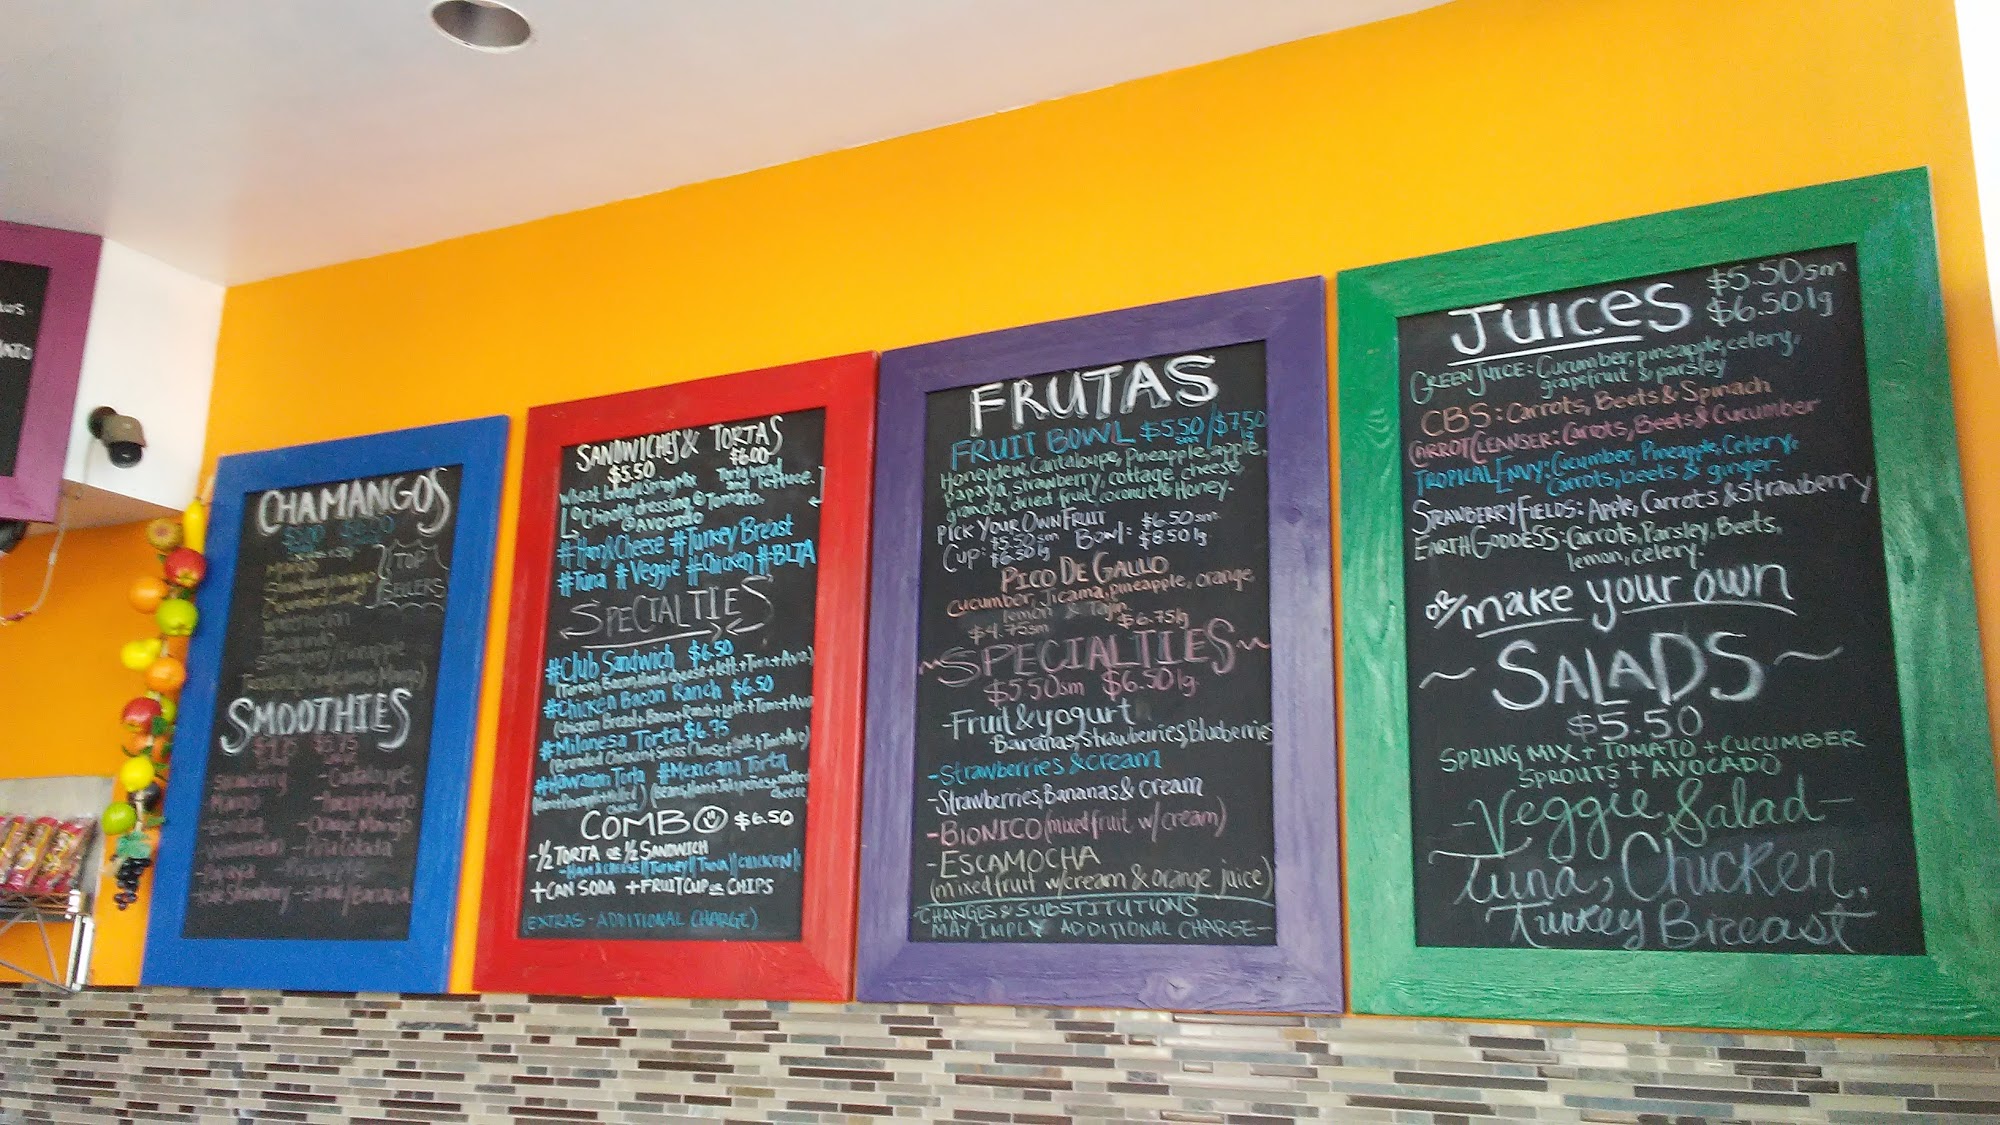 CHAMANGOS
TOP
SELLERS
Mango
Strawberry/Mango
Watermelon
Strawberry/Pineapple
SMOOTHIES
Strawberry
-Cantaloupe
Mango
-Pineapple Mango
-Orange Mango
-Watermelon
-Piña Colada
-Papaya
-Pineapple
SANDWICHES & TORTAS
$5.50
$6.00
Torta bread
and lettuce.
Chipotle dressing Tomato.
Avocado
#Ham&Cheese #Turkey Breast
#Tuna #Veggie #Chicken #BLTA
SPECIALTIES
#Club Sandwich $6.50
#Chicken Bacon Ranch $6.50
#Milanesa Torta $6.75
#Hawaiian Torta #Mexicana Torta
COMBO $6.50
-½ TORTA or ½ SANDWICH
-HAM & CHEESE||TURKEY||TUNA||CHICKEN||
+CAN SODA +FRUIT CUP or CHIPS
(EXTRAS-ADDITIONAL CHARGE)
FRUTAS
FRUIT BOWL $5.50 sm/$7.50 lg
Honeydew, Cantaloupe, Pineapple, apple,
papaya, strawberry, cottage cheese,
granola, dried fruit, coconut & Honey-
PICK YOUR OWN FRUIT
Cup: $5.50sm $6.50lg Bowl: $6.50sm $8.50lg
PICO DE GALLO
Cucumber, Jicama, pineapple, orange
lemon & Tajin
$4.75sm $6.75lg
~SPECIALTIES~
$5.50sm $6.50lg
-Fruit & yogurt
-Bananas, Strawberries, blueberries
-Strawberries & cream
-Strawberries, Bananas & cream
-BIONICO (mixed fruit w/cream)
-ESCAMOCHA
(mixed fruit w/cream & orange juice)
CHANGES & SUBSTITUTIONS
MAY IMPLY ADDITIONAL CHARGE-
JUICES $5.50sm
$6.50lg
GREEN JUICE: Cucumber, pineapple, celery,
grapefruit & parsley
CBS: Carrots, Beets & Spinach
CARROT CLEANSER: Carrots, Beets & Cucumber
TROPICAL ENVY: Cucumber, Pineapple, Celery,
Carrots, beets & ginger-
STRAWBERRY FIELDS: Apple, Carrots & Strawberry
EARTH GODDESS: Carrots, Parsley, Beets,
lemon, celery.
OR/make your own
~SALADS~
$5.50
SPRING MIX + TOMATO + CUCUMBER
SPROUTS + AVOCADO
-Veggie Salad-
Tuna, Chicken,
Turkey Breast